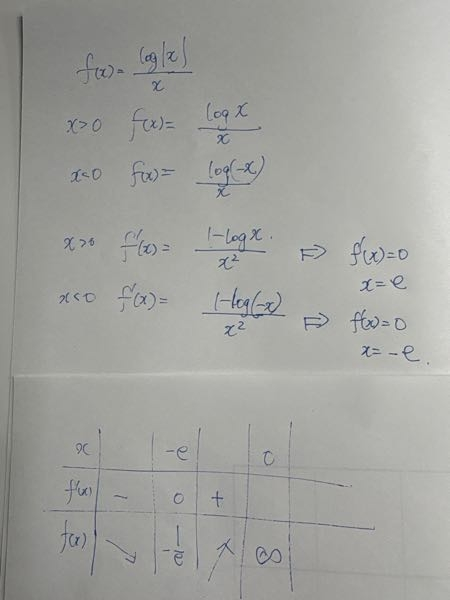 f(x) = log|x| / x
x>0 f(x) = log x / x
x<0 f(x) = log(-x) / x
x>0 f'(x) = 1-log x / x² ⇒ f'(x)=0
x=e
x<0 f'(x) = 1-log(-x) / x² ⇒ f'(x)=0
x=-e.
x -e 0
f'(x) - 0 +
f(x) ↘ -1/e ↗ ∞